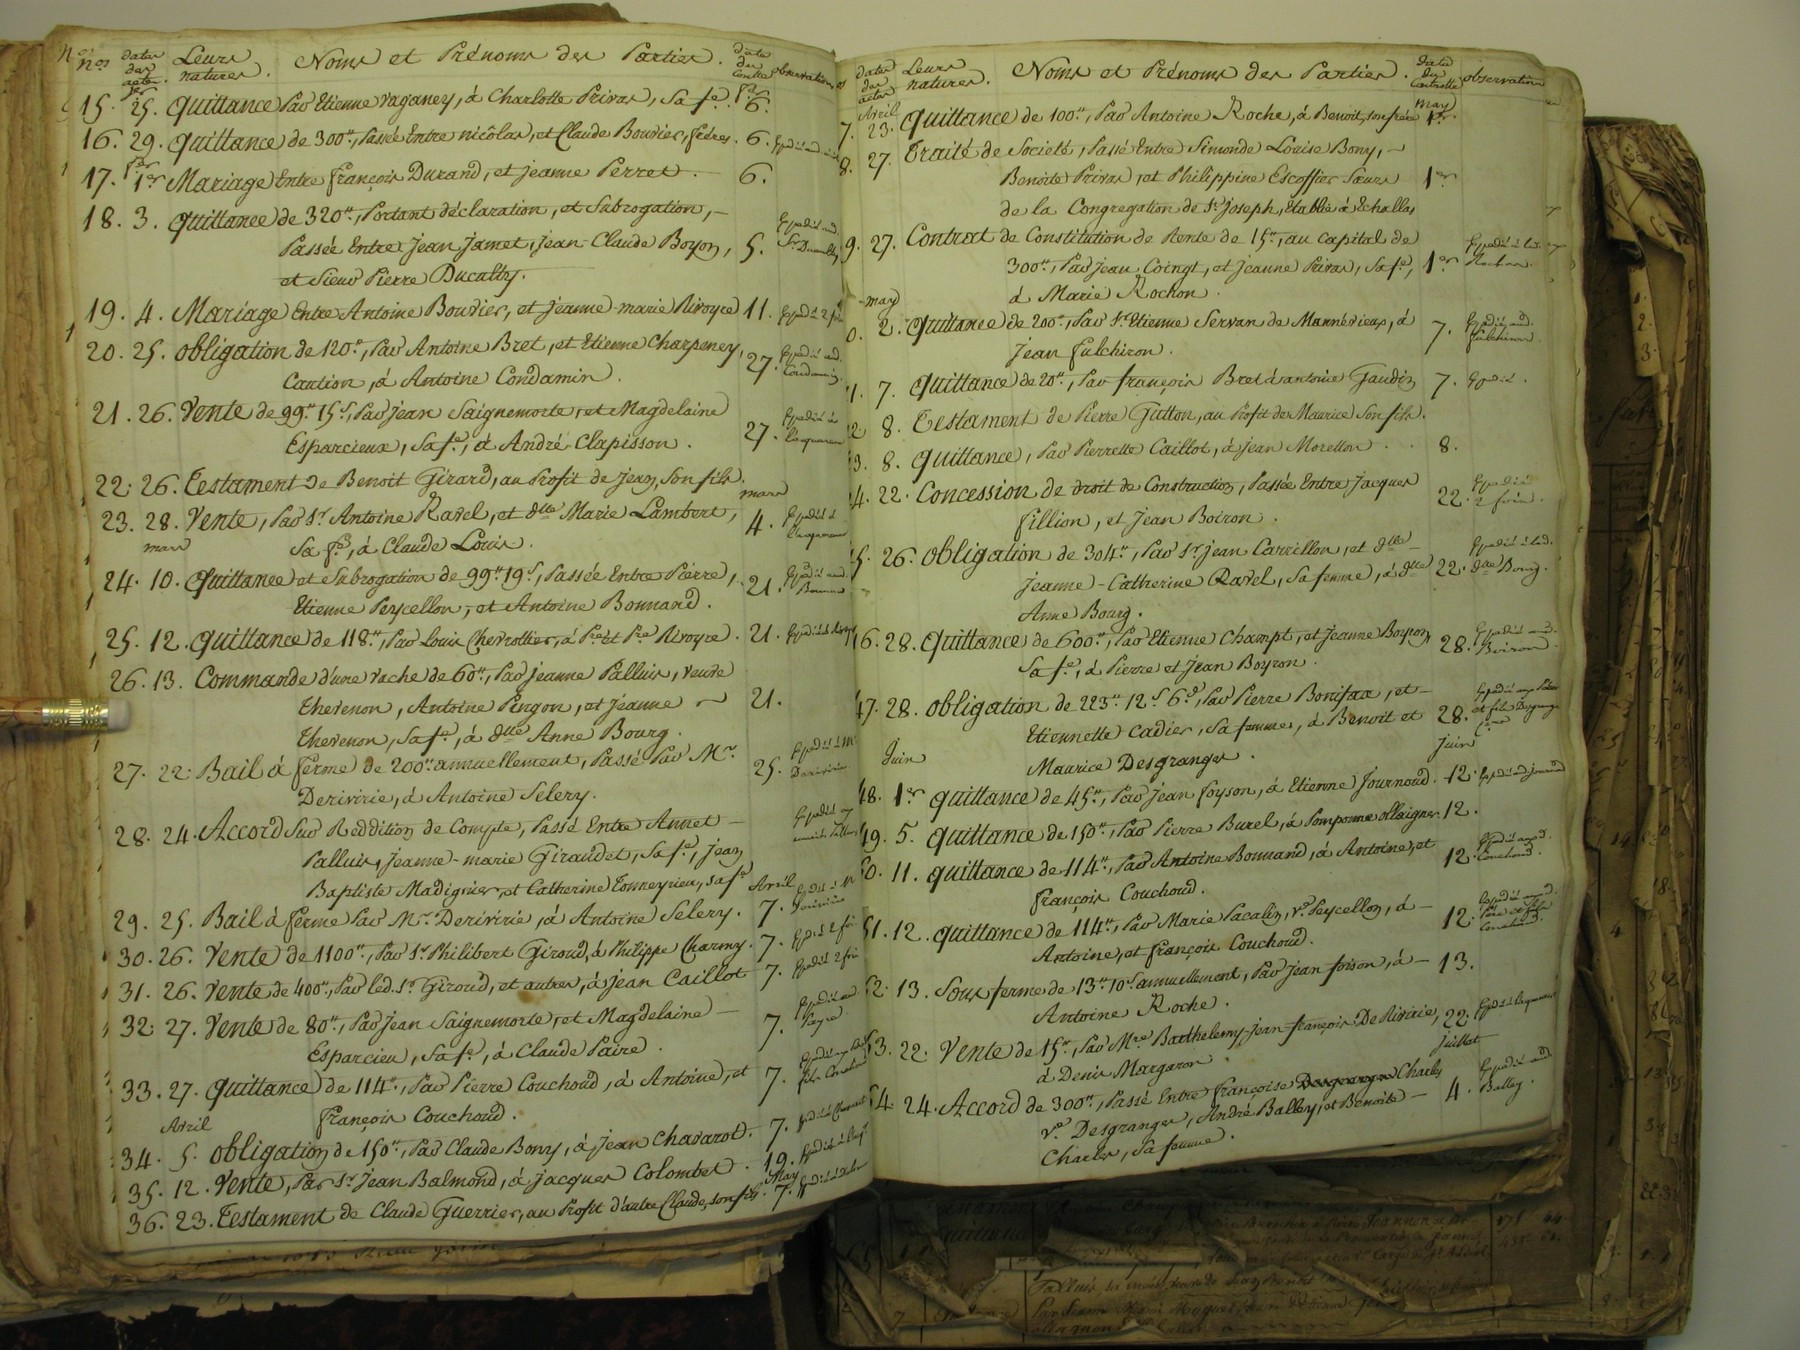 nos dates des actes Leurs natures. Noms et Prénoms des Parties. date du Contrle observation
15. 25. Quittance Par Etienne Vaganey, à Charlotte Privas, Sa fe. 6.
16. 29. Quittance de 300tt, Passée Entre nicolas, et Claude Bouvier, frères. 6.
17. 1er Mariage Entre françois Durand, et jeanne Perret. 6.
18. 3. Quittance de 320tt, Portant déclaration, et Subrogation,
Passée Entre jean jamet, jean-Claude Boyron, 5.
et Sieur Pierre Ducatty.
19. 4. Mariage Entre Antoine Bouvier, et jeanne-marie Rivoyre 11. Expedié 2 fois
20. 25. obligation de 120tt, Par Antoine Bret, et Etienne Charpeney,
Caution, à Antoine Condamin. 27. Expedié aud. Condamin
21. 26. Vente de 99tt 15s, Par jean Saignemorte, et Magdelaine
Esparcieux, Safe, à André Clapisson. 27. Expedié à l'acquereur
22. 26. Testament de Benoit Girard, au Profit de jean, Son fils.
mars
23. 28. Vente, Par Sr Antoine Ravel, et dlle Marie Lambert, 4. Expedié à l'acquereur
mars Sa fe, à Claude Louis.
24. 10. Quittance et Subrogation de 99tt 19s, Passée Entre Pierre, 21. Expedié aud. Bonnard
Etienne Peycellon, et Antoine Bonnard.
25. 12. Quittance de 118tt, Par Louis Chevrottier, à Pre et Pre Rivoyre. 21.
26. 13. Commande d'une vache de 60tt, Par jeanne Palluis, veuve
Thevenon, Antoine Pingon, et jeanne 21.
Thevenon, Safe, à dlle Anne Bourg.
27. 22. Bail à ferme de 200tt annuellement, Passé Par Mr. 25. Expedié à Mr Derivirie
Derivirie, à Antoine Selery.
28. 24. Accord Sur Reddition de Compte, Passé Entre Annet
Palluis, jeanne-marie Giraudet, Safe, jean
Baptiste Madignier, et Catherine Tonneyrieu, safe
Avril
29. 25. Bail à ferme Par Mr. Derivirie, à Antoine Selery. 7. Expedié à Mr Derivirie
30. 26. Vente de 1100tt, Par Sr Philibert Giroud, à Philippe Charmy. 7. Expedié 2 fois
31. 26. Vente de 400tt, Par led. Sr Giroud, et autres, à jean Caillot 7. Expedié 2 fois
32. 27. Vente de 80tt, Par jean Saignemorte, et Magdelaine 7. Expedié aud. Payre
Esparcieu, Safe, à Claude Paire.
33. 27. Quittance de 114tt, Par Pierre Couchoud, à Antoine, et 7.
Avril françois Couchoud.
34. 5. obligation de 150tt, Par Claude Bony, à jean Chavarot. 7.
35. 12. Vente, Par Sr jean Balmond, à jacques Colombet. 19.
May
36. 23. Testament de Claude Guerrier, au Profit d'autre Claude, son fils. 7.
dates des actes Leurs natures. Noms et Prénoms des Parties. date du Controlle observation
Avril may
7. 23. Quittance de 100tt, Par Antoine Roche, à Benoit, son frère 1er.
8. 27. Traité de Societé, Passé Entre Simonde Louise Bony,
Benoite Privas, et Philippine Escoffier Sœurs 1er
de la Congregation de St. Joseph, Etablie à Echallas
9. 27. Contrat de Constitution de Rente de 15tt, au Capital de
300tt, Par Jean Coingt, et Jeanne Privas, Safe, 1er Expedié à lad. Rochon
à Marie Rochon.
may
0. 2. Quittance de 200tt, Par Sr Etienne Servan de Mannevieux, à 7. Expedié aud. fulchiron.
Jean fulchiron.
1. 7. Quittance de 20tt, Par françois Bret à antoine Gaudin 7. Expedié.
2 8. Testament de Pierre Gutton, au Profit de Maurice Son fils.
3. 8. Quittance, Par Pierrette Caillot, à jean Morellon. 8.
4. 22. Concession de droit de Construction, Passée Entre Jacques 22. Expedié 2 fois.
fillion, et Jean Boiron.
5. 26. obligation de 304tt, Par Sr jean Carrillon, et dlle
Jeanne-Catherine Ravel, Sa femme, à dlle 22. Expedié à lad. dlle Bourg.
Anne Bourg.
6. 28. Quittance de 600tt, Par Etienne Champt, et Jeanne Boyron 28. Expedié aud. Boiron
Safe, à Pierre et Jean Boyron.
47. 28. obligation de 223tt 12s 6d, Par Pierre Bonifax, et
Etiennette Cadier, Sa femme, à Benoit et 28.
juin Maurice Desgranges. juin
48. 1er Quittance de 45tt, Par Jean foyson, à Etienne Journoud. 12. Expedié aud journoud
49. 5. Quittance de 150tt, Par Pierre Burel, à Pomponne ollaignier 12.
50. 11. Quittance de 114tt, Par Antoine Bonnard, à Antoine, et 12. Expedié auxd. Couchoud.
françois Couchoud.
51. 12. Quittance de 114tt, Par Marie Pacalin, ve. Peycellon, à 12.
Antoine, et françois Couchoud.
52. 13. Sous ferme de 13tt 10s annuellement, Par Jean foison, à 13.
Antoine Roche.
53. 22. Vente de 15tt, Par Mre Barthelemy-Jean-françois De Rivirie, 22. Expedié à l'acquereur
à Denis Margaron. juillet
54. 24. Accord de 300tt, Passé Entre françoise Desgranges Charles
ve. Desgranges, André Balley, et Benoite 4. Expedié aud. Balley.
Charles, Sa femme.